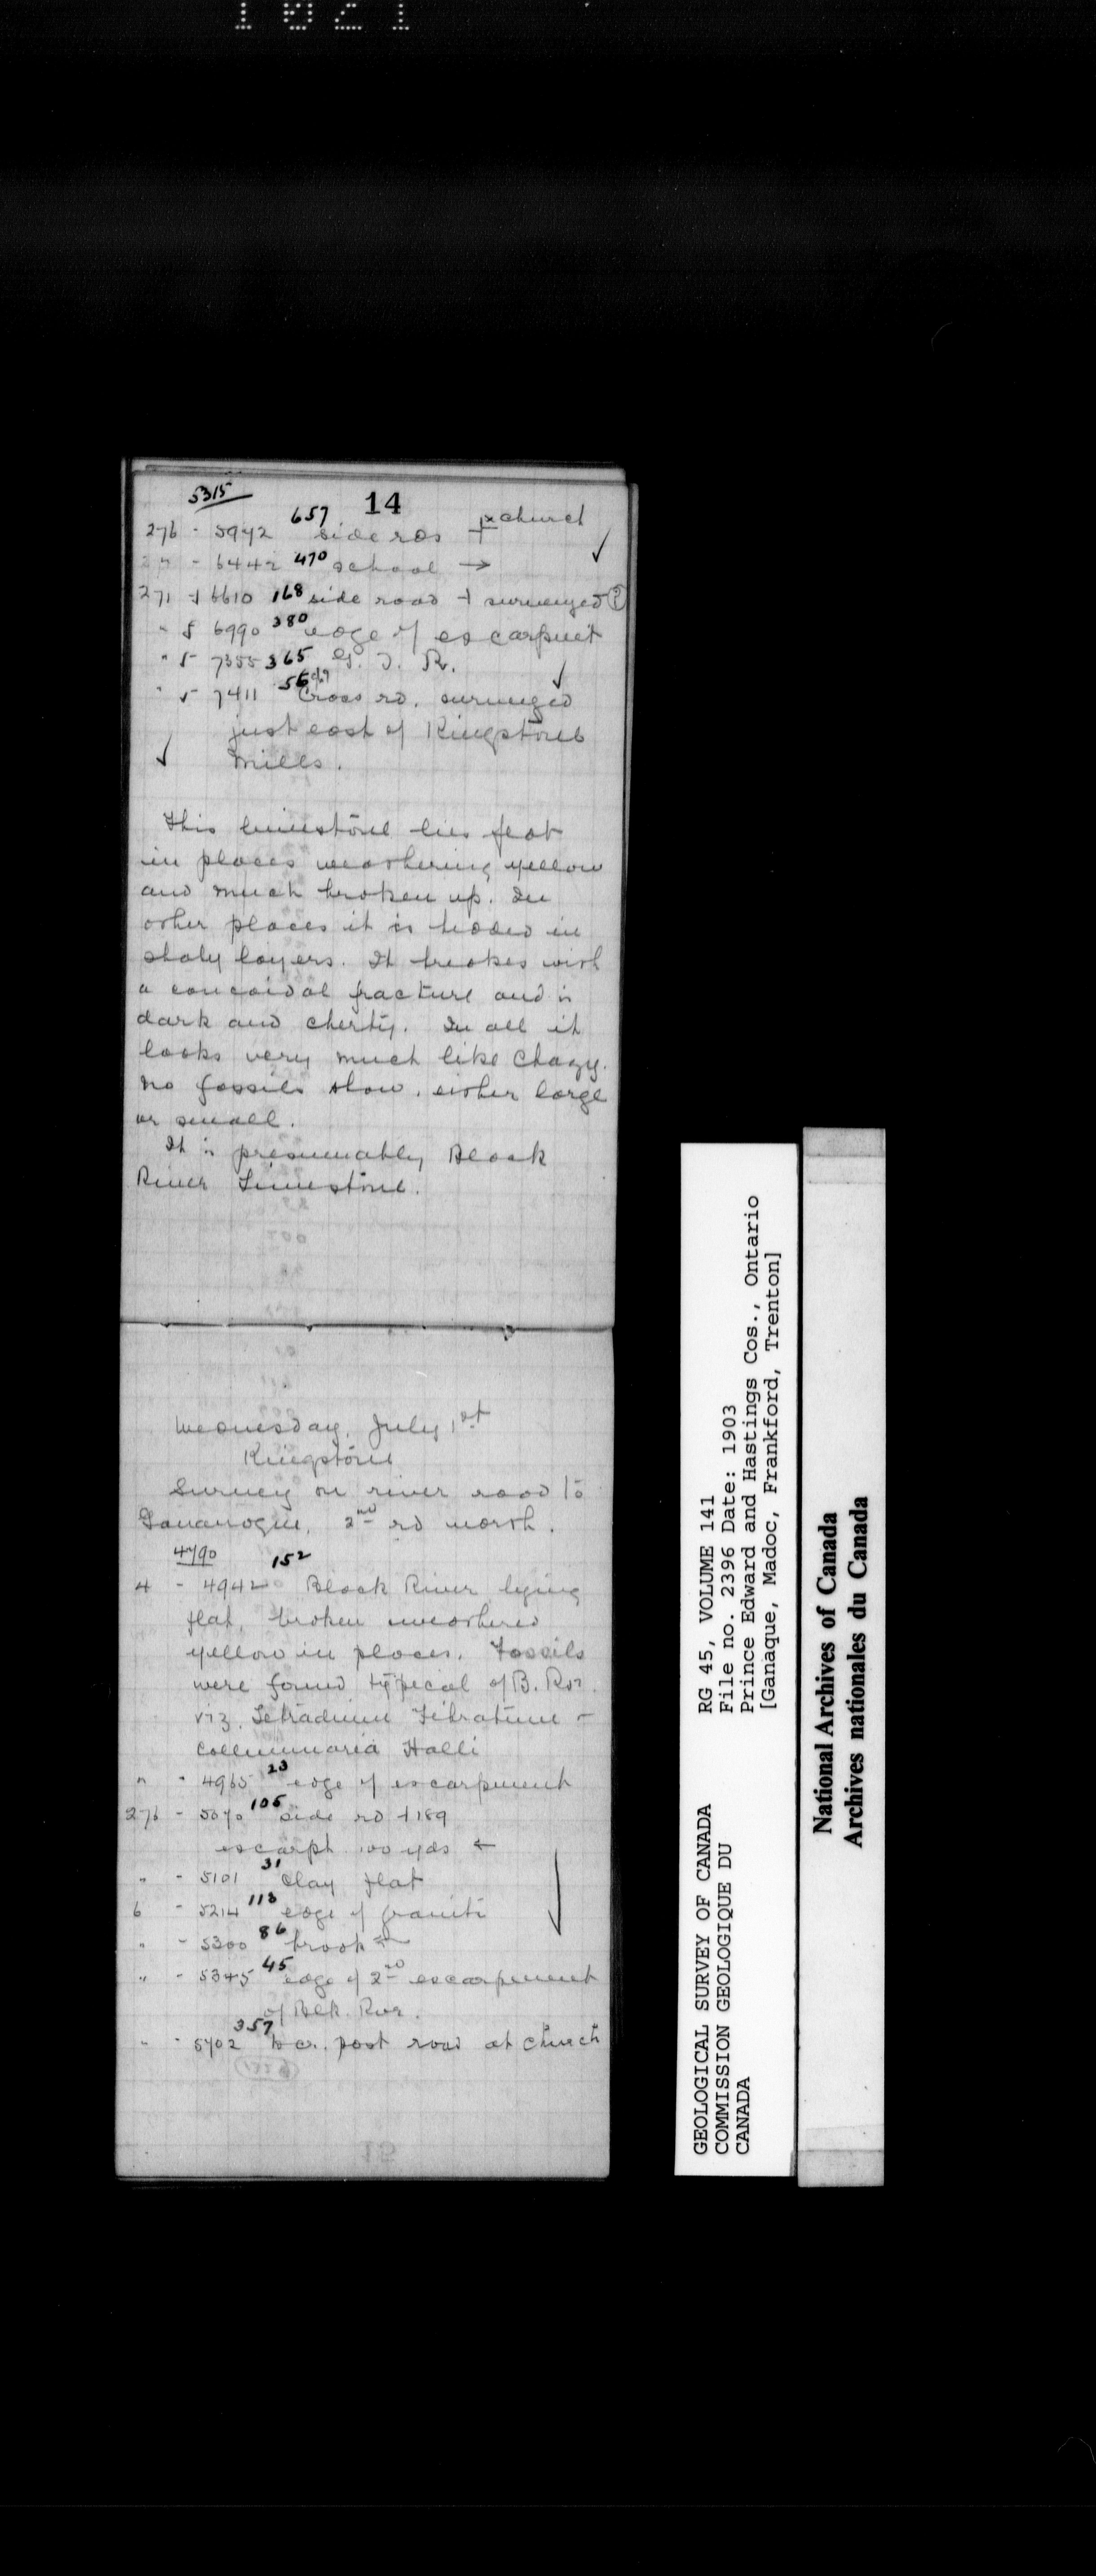 1021
5315
14
276 - 5972 657 side rds church
" - 6442 470 school →
271 - 6610 168 side road surveyed
" 5 6990 380 edge of escarpmet
" 5 7355 365 G. T. R.
" 5 7411 56 Cross rd. surveyed
just east of Kingstons
Mills.
This limestone lies flat
in places weathering yellow
and much broken up. In
other places it is bedded in
shaly layers. It breakes with
a concoidal fracture and is
dark and cherty. In all it
looks very much like Chazy.
No fossils show, either large
or small.
It is presumably Black
River Limestone.
Wednesday, July 1st
Kingston
Survey on river road to
Gananoque, 2nd rd north.
4790
4 - 4942 152 Black River lying
flat, broken weathered
yellow in places. Fossils
were found typical of B. Rvr.
viz. Tetradium Fibratum -
Collumnaria Halli
" - 4965 23 edge of escarpment
276 - 5070 105 side rd 189
escarpt 100 yds ←
" - 5101 31 Clay flat
6 - 5214 113 edge of granite
" - 5300 86 brook
" - 5345 45 edge of 2nd escarpment
of Blk. Rvr.
" - 5702 357 to cr. post road at church
15
GEOLOGICAL SURVEY OF CANADA
COMMISSION GEOLOGIQUE DU
CANADA
RG 45, VOLUME 141
File no. 2396 Date: 1903
Prince Edward and Hastings Cos., Ontario
[Ganaque, Madoc, Frankford, Trenton]
National Archives of Canada
Archives nationales du Canada